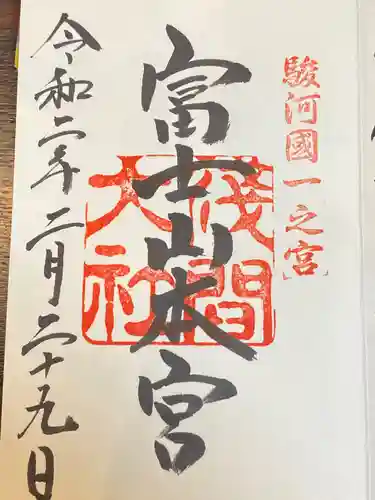 駿河國一之宮
富士山本宮
浅間大社
令和二年二月二十九日